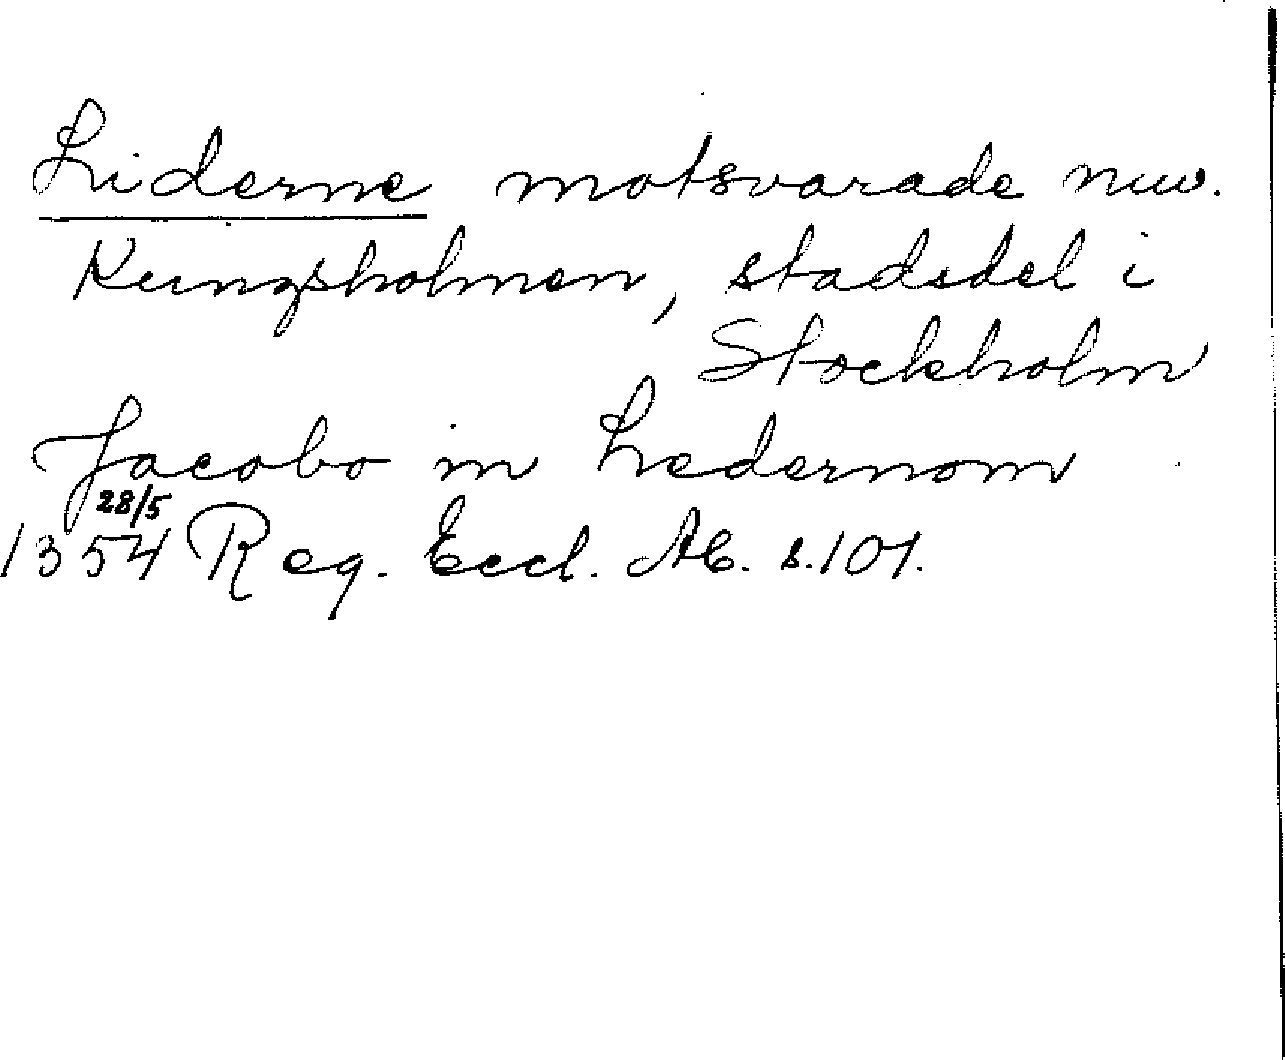 Liderne motsvarade nuv.
Kungsholmen, stadsdel i
Stockholm
Jacobo in Ledernom
28/5
1354 Reg. Eccl. Ab. s. 101.